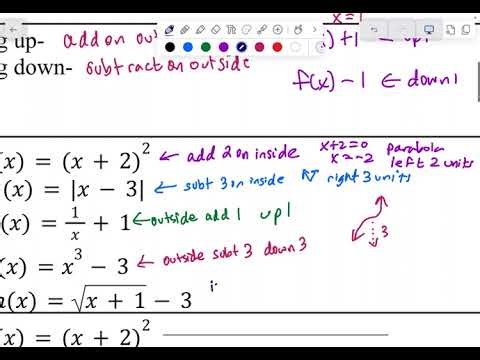 x=1
g up- add on out
f(x)+1 ← up1
g down- subtract on outside
f(x) - 1 ← down1
(x) = (x + 2)² ← add 2 on inside x+2=0 x=-2 parabola left 2 units
(x) = |x − 3| ← subt 3 on inside right 3 units
(x) = 1/x + 1 ← outside add 1 up 1
(x) = x³ − 3 ← outside subt 3 down 3
3
(x) = √(x + 1) − 3
(x) = (x + 2)²